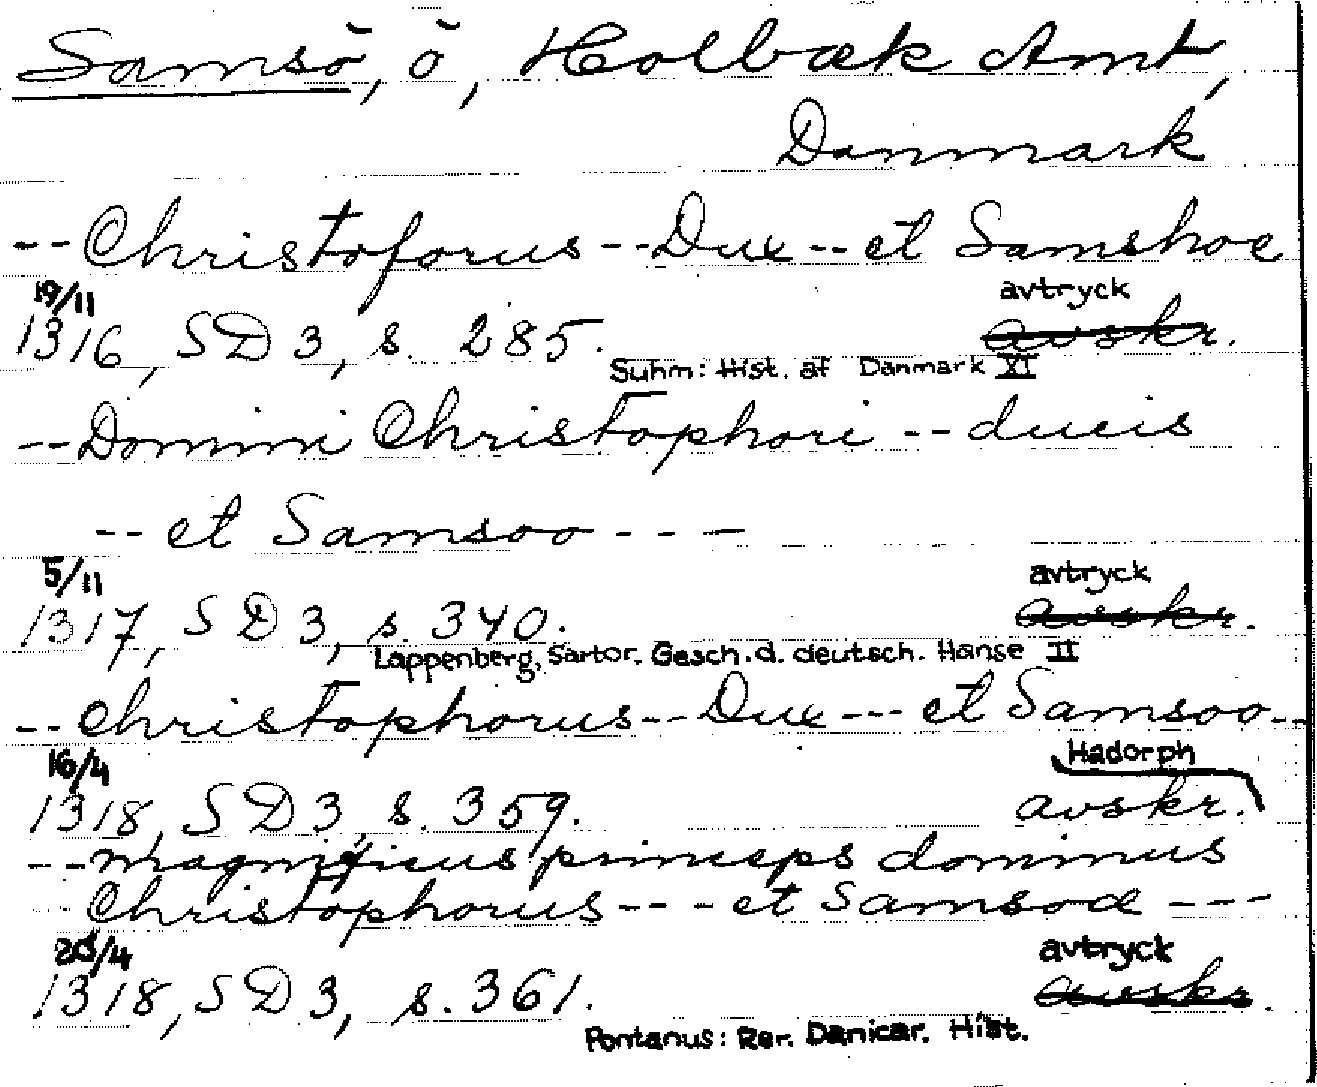 Samsö, ö, Holbæk Amt,
Danmark
--Christoforus--Dux--et Samshoe
19/11 avtryck
1316, SD 3, s. 285. avskr.
Suhm: Hist. af Danmark XI
--Domini Christophori--ducis
--et Samsoo---
5/11 avtryck
1317, SD 3, s. 340. avskr.
Lappenberg, Sartor. Gesch. d. deutsch. Hanse II
--Christophorus--Dux---et Samsoo--
16/4 Hadorph
1318, SD 3, s. 359. avskr.
--magnificus princeps dominus
Christophorus---et Samsoæ---
/4 avtryck
1318, SD 3, s. 361. avskr.
Pontanus: Rer. Danicar. Hist.